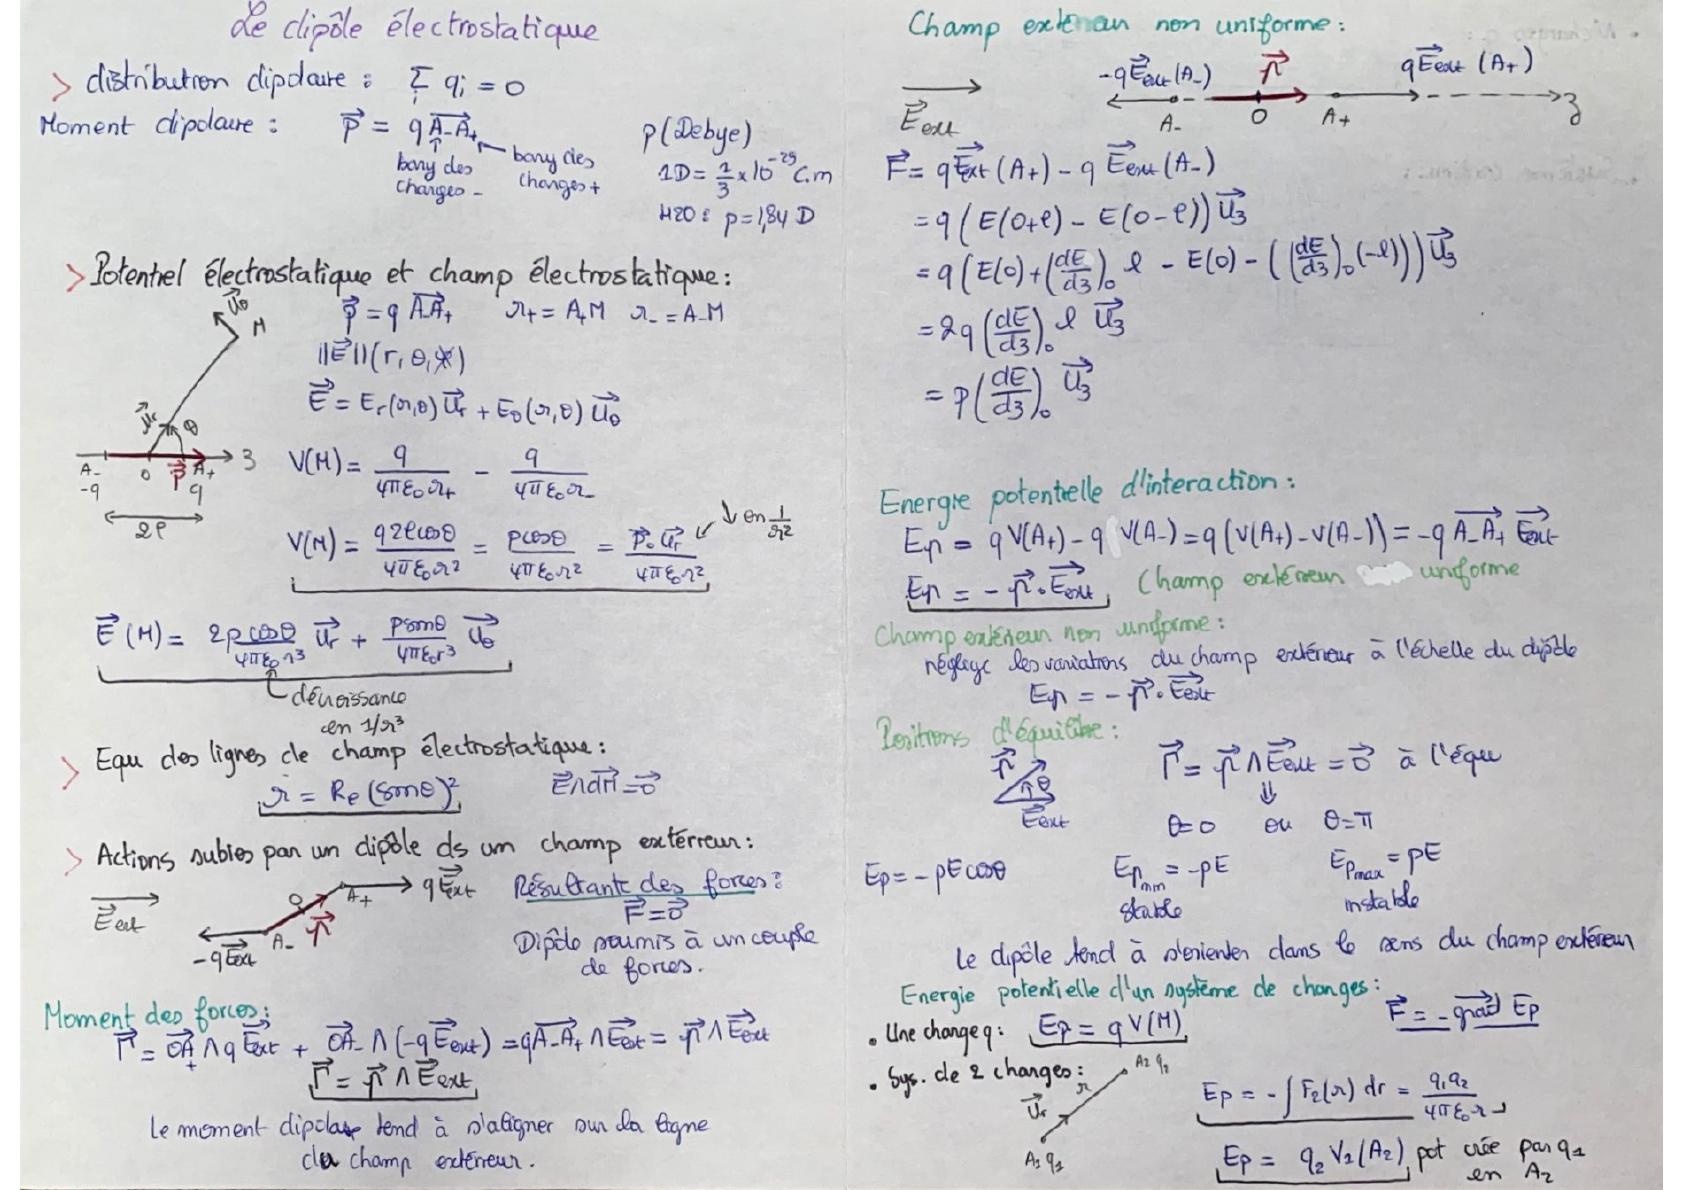 Le dipôle électrostatique
> distribution dipolaire : Σ_i q_i = 0
Moment dipolaire : p⃗ = q A₋A₊
bary des charges -
bary des charges +
p (Debye)
1D = 1/3 × 10⁻²⁹ C.m
H2O : p = 1,84 D
> Potentiel électrostatique et champ électrostatique :
p⃗ = q A₋A₊ r₊ = A₊M r₋ = A₋M
||E⃗|| (r, θ, φ)
E⃗ = Er(r,θ) u⃗r + Eθ(r,θ) u⃗θ
u⃗θ M
u⃗r θ
A₋ O p⃗ A₊ z
-q q
2l
V(M) = q/(4πε₀r₊) - q/(4πε₀r₋)
V(M) = q2lcosθ/(4πε₀r²) = pcosθ/(4πε₀r²) = p⃗.u⃗r/(4πε₀r²) ↓ en 1/r²
E⃗(M) = 2pcosθ/(4πε₀r³) u⃗r + psinθ/(4πε₀r³) u⃗θ
décroissance
en 1/r³
> Equ des lignes de champ électrostatique :
r = Re (sinθ)² E⃗∧dM⃗ = 0⃗
> Actions subies par un dipôle ds um champ extérieur :
E⃗ext O A₊ qE⃗ext
-qE⃗ext A₋ p⃗
Résultante des forces :
F⃗ = 0⃗
Dipôle soumis à un couple
de forces.
Moment des forces :
Γ⃗ = OA₊ ∧ qE⃗ext + OA₋ ∧ (-qE⃗ext) = qA₋A₊ ∧ E⃗ext = p⃗ ∧ E⃗ext
Γ⃗ = p⃗ ∧ E⃗ext
Le moment dipolaire tend à s'aligner sur la ligne
du champ extérieur.
Champ extérieur non uniforme :
-qE⃗ext(A₋) p⃗ qE⃗ext (A₊)
E⃗ext A₋ O A₊ z
F⃗ = qE⃗ext (A₊) - q E⃗ext (A₋)
= q ( E(0+l) - E(0-l)) u⃗z
= q ( E(0) + (dE/dz)₀ l - E(0) - ((dE/dz)₀ (-l))) u⃗z
= 2q (dE/dz)₀ l u⃗z
= p (dE/dz)₀ u⃗z
Energie potentielle d'interaction :
Ep = qV(A₊) - q V(A₋) = q (V(A₊) - V(A₋)) = -q A₋A₊ E⃗ext
Ep = - p⃗.E⃗ext Champ extérieur uniforme
Champ extérieur non uniforme :
néglige les variations du champ extérieur à l'échelle du dipôle
Ep = - p⃗.E⃗ext
Positions d'équilibre :
p⃗ θ E⃗ext
Γ⃗ = p⃗ ∧ E⃗ext = 0⃗ à l'équ
⇓
θ=0 ou θ=π
Ep = - pEcosθ Ep min = -pE Ep max = pE
stable instable
Le dipôle tend à s'orienter dans le sens du champ extérieur
Energie potentielle d'un système de charges :
F⃗ = -grad Ep
• Une charge q : Ep = qV(M)
• Sys. de 2 charges :
A₂ q₂
r
u⃗r
A₁ q₁
Ep = -∫F₂(r) dr = q₁q₂/(4πε₀r)
Ep = q₂ V₁(A₂) pot crée par q₁
en A₂